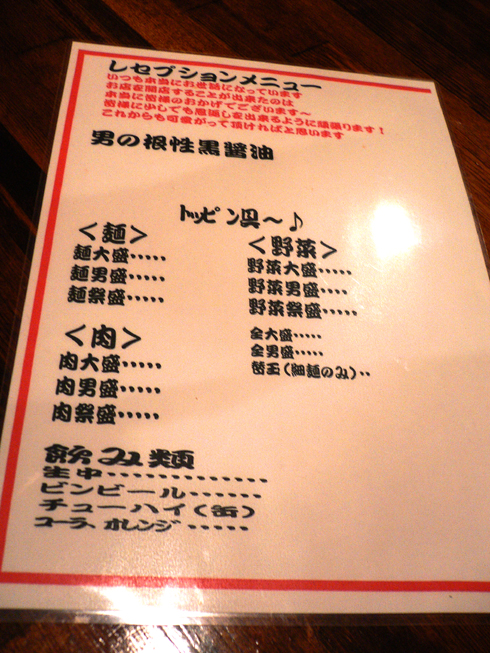 レセプションメニュー
いつも本当にお世話になっています
お店を開店することが出来たのは
本当に皆様のおかげでございます～
皆様に少しでも恩返しを出来るように頑張ります！
これからも可愛がって頂ければと思います
男の根性黒醤油
トッピン具～♪
＜麺＞
麺大盛・・・・・
麺男盛・・・・・
麺祭盛・・・・・
＜野菜＞
野菜大盛・・・・・
野菜男盛・・・・
野菜祭盛・・・・・
全大盛・・・・・
全男盛・・・・・
替玉（細麺のみ）・・
＜肉＞
肉大盛・・・・・
肉男盛・・・・・
肉祭盛・・・・・
飲み類
生中・・・・・・・・・・・・・
ビンビール・・・・・・
チューハイ（缶）
コーラ、オレンジ・・・・・